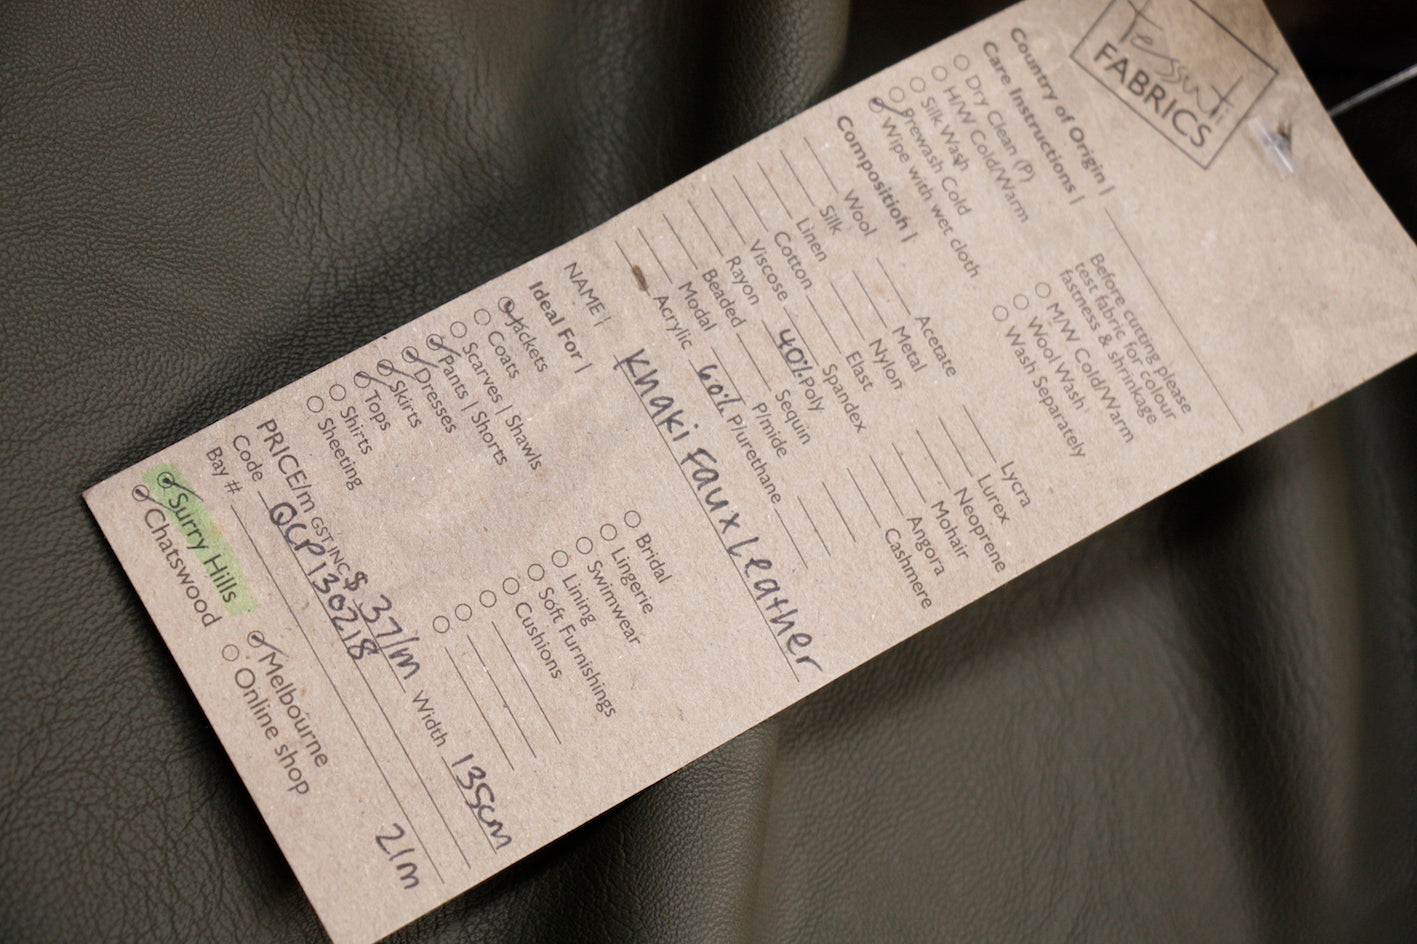 Tessuti
FABRICS
Country of Origin |
Care Instructions |
Dry Clean (P)
H/W Cold/Warm
Silk Wash
Prewash Cold
Wipe with wet cloth
Before cutting please
test fabric for colour
fastness & shrinkage
M/W Cold/Warm
Wool Wash
Wash Separately
Composition |
Wool
Silk
Linen
Cotton
Viscose
Rayon
Beaded
Modal
Acrylic
Acetate
Metal
Nylon
Elast
Spandex
40% Poly
Sequin
P/mide
60% P/urethane
Lycra
Lurex
Neoprene
Mohair
Angora
Cashmere
NAME | Khaki Faux Leather
Ideal For |
Jackets
Coats
Scarves | Shawls
Pants | Shorts
Dresses
Skirts
Tops
Shirts
Sheeting
Bridal
Lingerie
Swimwear
Lining
Soft Furnishings
Cushions
PRICE/m GST INC $ 37/m Width 135cm
Code QCP130218
Bay #
21m
Surry Hills
Chatswood
Melbourne
Online shop